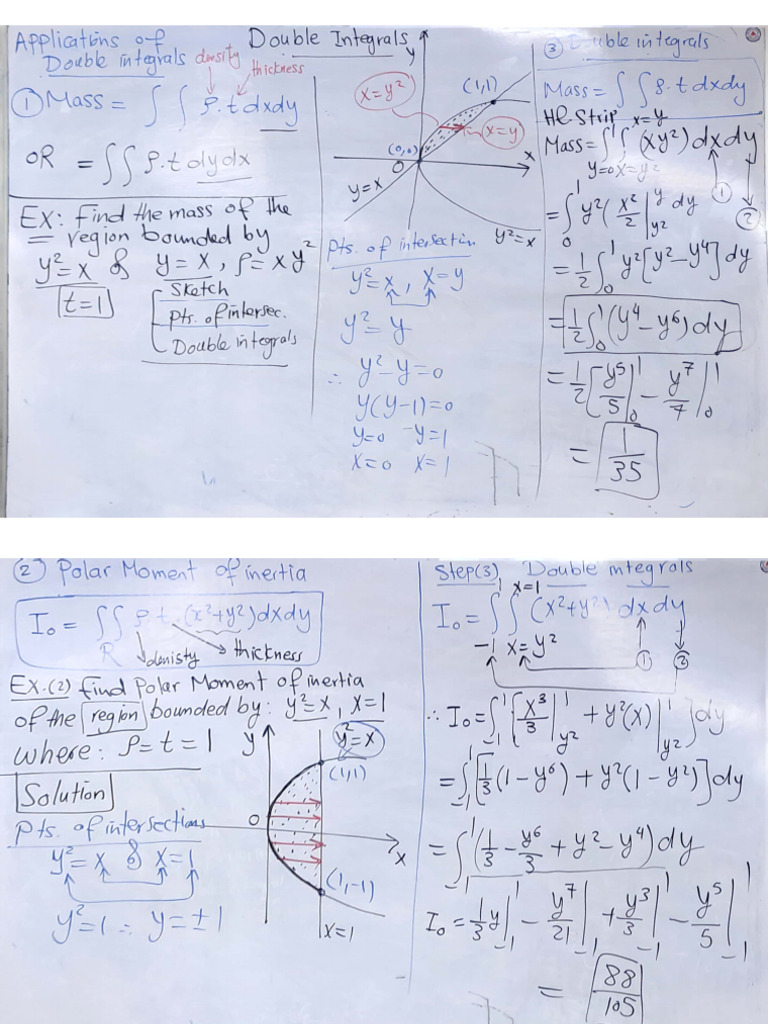 Applications of
Double integrals
density
thickness
① Mass = ∫ ∫ ρ.t dxdy
OR = ∫∫ ρ.t dydx
EX: Find the mass of the
region bounded by
y²=x & y=x, ρ=xy²
t=1
Sketch
Pts. of intersec.
Double integrals
Double Integrals
y
x=y²
(1,1)
x=y
(0,0)
O
x
y=x
y²=x
Pts. of intersectin
y²=x, x=y
y²=y
∴ y²-y=0
y(y-1)=0
y=0 y=1
x=0 x=1
③ Double integrals
Mass = ∫ ∫ ρ.t dxdy
HR-Strip x=y
Mass = ∫₀¹ ∫ (xy²) dxdy
y=0 x=y²
① ②
= ∫₀¹ y² (x²/2 |_{y²}^{y} dy
= 1/2 ∫₀¹ y² [y²-y⁴] dy
= 1/2 ∫₀¹ (y⁴-y⁶) dy
= 1/2 [y⁵/5 |₀¹ - y⁷/7 |₀¹
= 1/35
② Polar Moment of inertia
I₀ = ∫∫ ρ t. (x²+y²) dxdy
R
denisty
thickness
EX.(2) Find Polar Moment of inertia
of the region bounded by: y²=x, x=1
where: ρ=t=1
Solution
Pts. of intersections
y²=x & x=1
y²=1 ∴ y=±1
y
y²=x
(1,1)
O
x
(1,-1)
x=1
Step(3) Double integrals
1 x=1
I₀ = ∫ ∫ (x²+y²) dxdy
-1 x=y²
① ②
∴ I₀ = ∫₋₁¹ [x³/3 |_{y²}^{1} + y²(x) |_{y²}^{1} ] dy
= ∫₋₁¹ [1/3 (1-y⁶) + y²(1-y²)] dy
= ∫₋₁¹ (1/3 - y⁶/3 + y² - y⁴) dy
I₀ = 1/3 y |₋₁¹ - y⁷/21 |₋₁¹ + y³/3 |₋₁¹ - y⁵/5 |₋₁¹
= 88/105